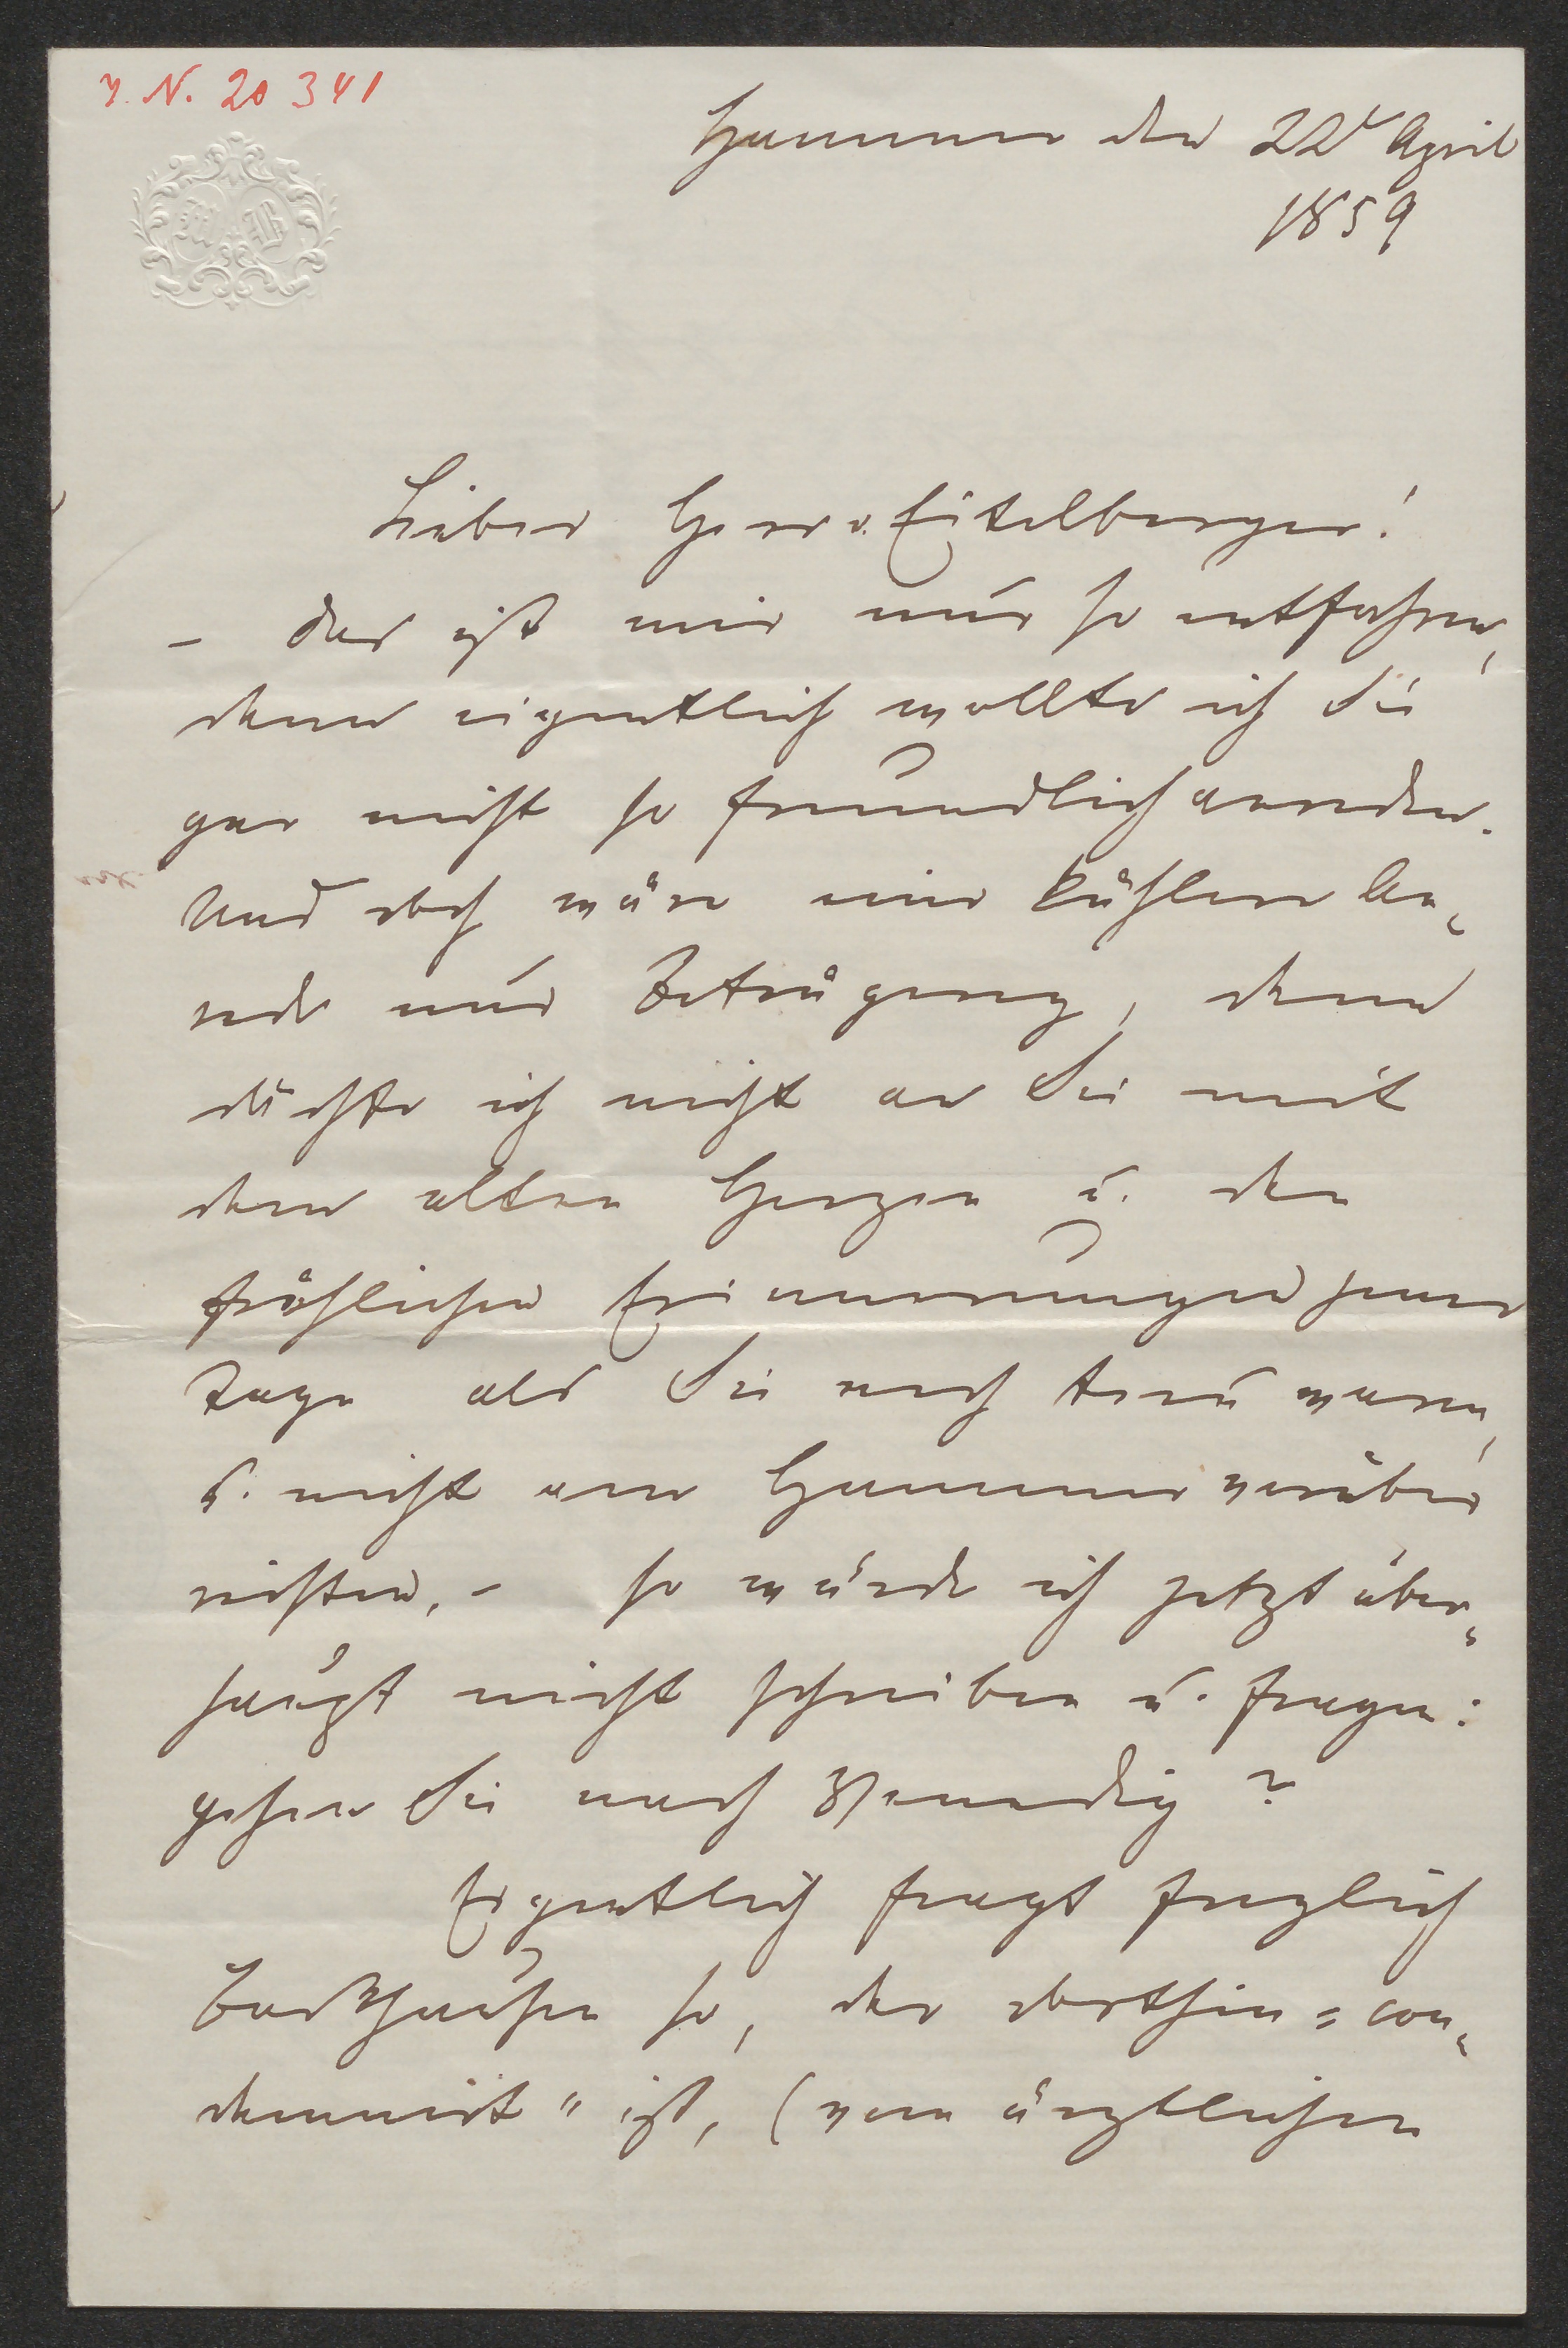 I. N. 20 341
Hammer den 22t April
1859
Lieber Herr v. Eitelberger!
– das ist mir nur so entfahren,
denn eigentlich wollte ich Sie
gar nicht so freundlich anreden.
Und doch wäre eine kühlere An-
rede nur Betrügerey, denn
dächte ich nicht an Sie mit
dem alten Herzen u. den
fröhlichen Erinnerungen jener
Tage als Sie noch treu waren,
u. nicht am Hammer vorüber
reisten, – so würde ich jetzt über-
haupt nicht schreiben u. fragen:
gehen Sie nach Venedig?
Eigentlich fragt
so, der dorthin „con-
demnirt" ist, (vom ärztlichen